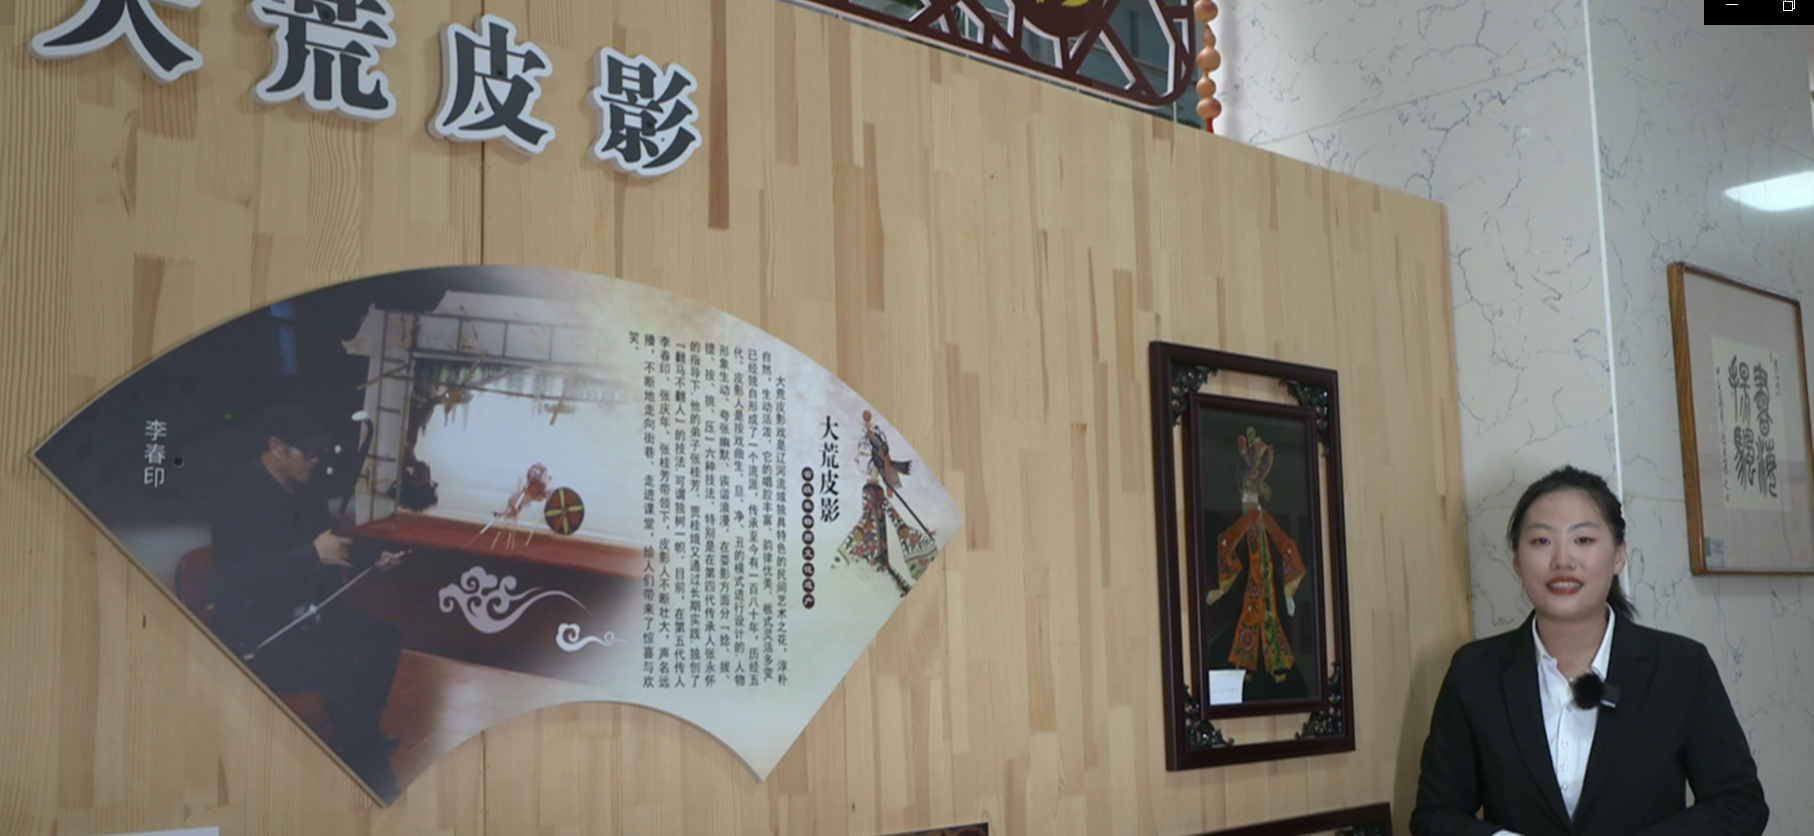 大荒皮影
李春印
大荒皮影
大荒皮影戏是辽河流域独具特色的民间艺术之花，淳朴
自然，生动活泼，它的唱腔丰富、韵律优美、板式灵活多变，
已经独自形成了一个流派，传承至今有一百八十年，历经五
代。皮影人是按戏曲生、旦、净、丑的模式进行设计的，人物
形象生动、夸张幽默、诙谐浪漫。在耍影方面分“捻、拔、
提、按、挑、压”六种技法，特别是在第四代传承人张永怀
的指导下，他的弟子张桂芳、贾桂娥又通过长期实践，独创了
“翻马不翻人”的技法，可谓独树一帜。目前，在第五代传人
李春印、张庆年、张桂芳带领下，皮影人不断壮大，声名远
播，不断地走向街巷、走进课堂，给人们带来了惊喜与欢
笑。